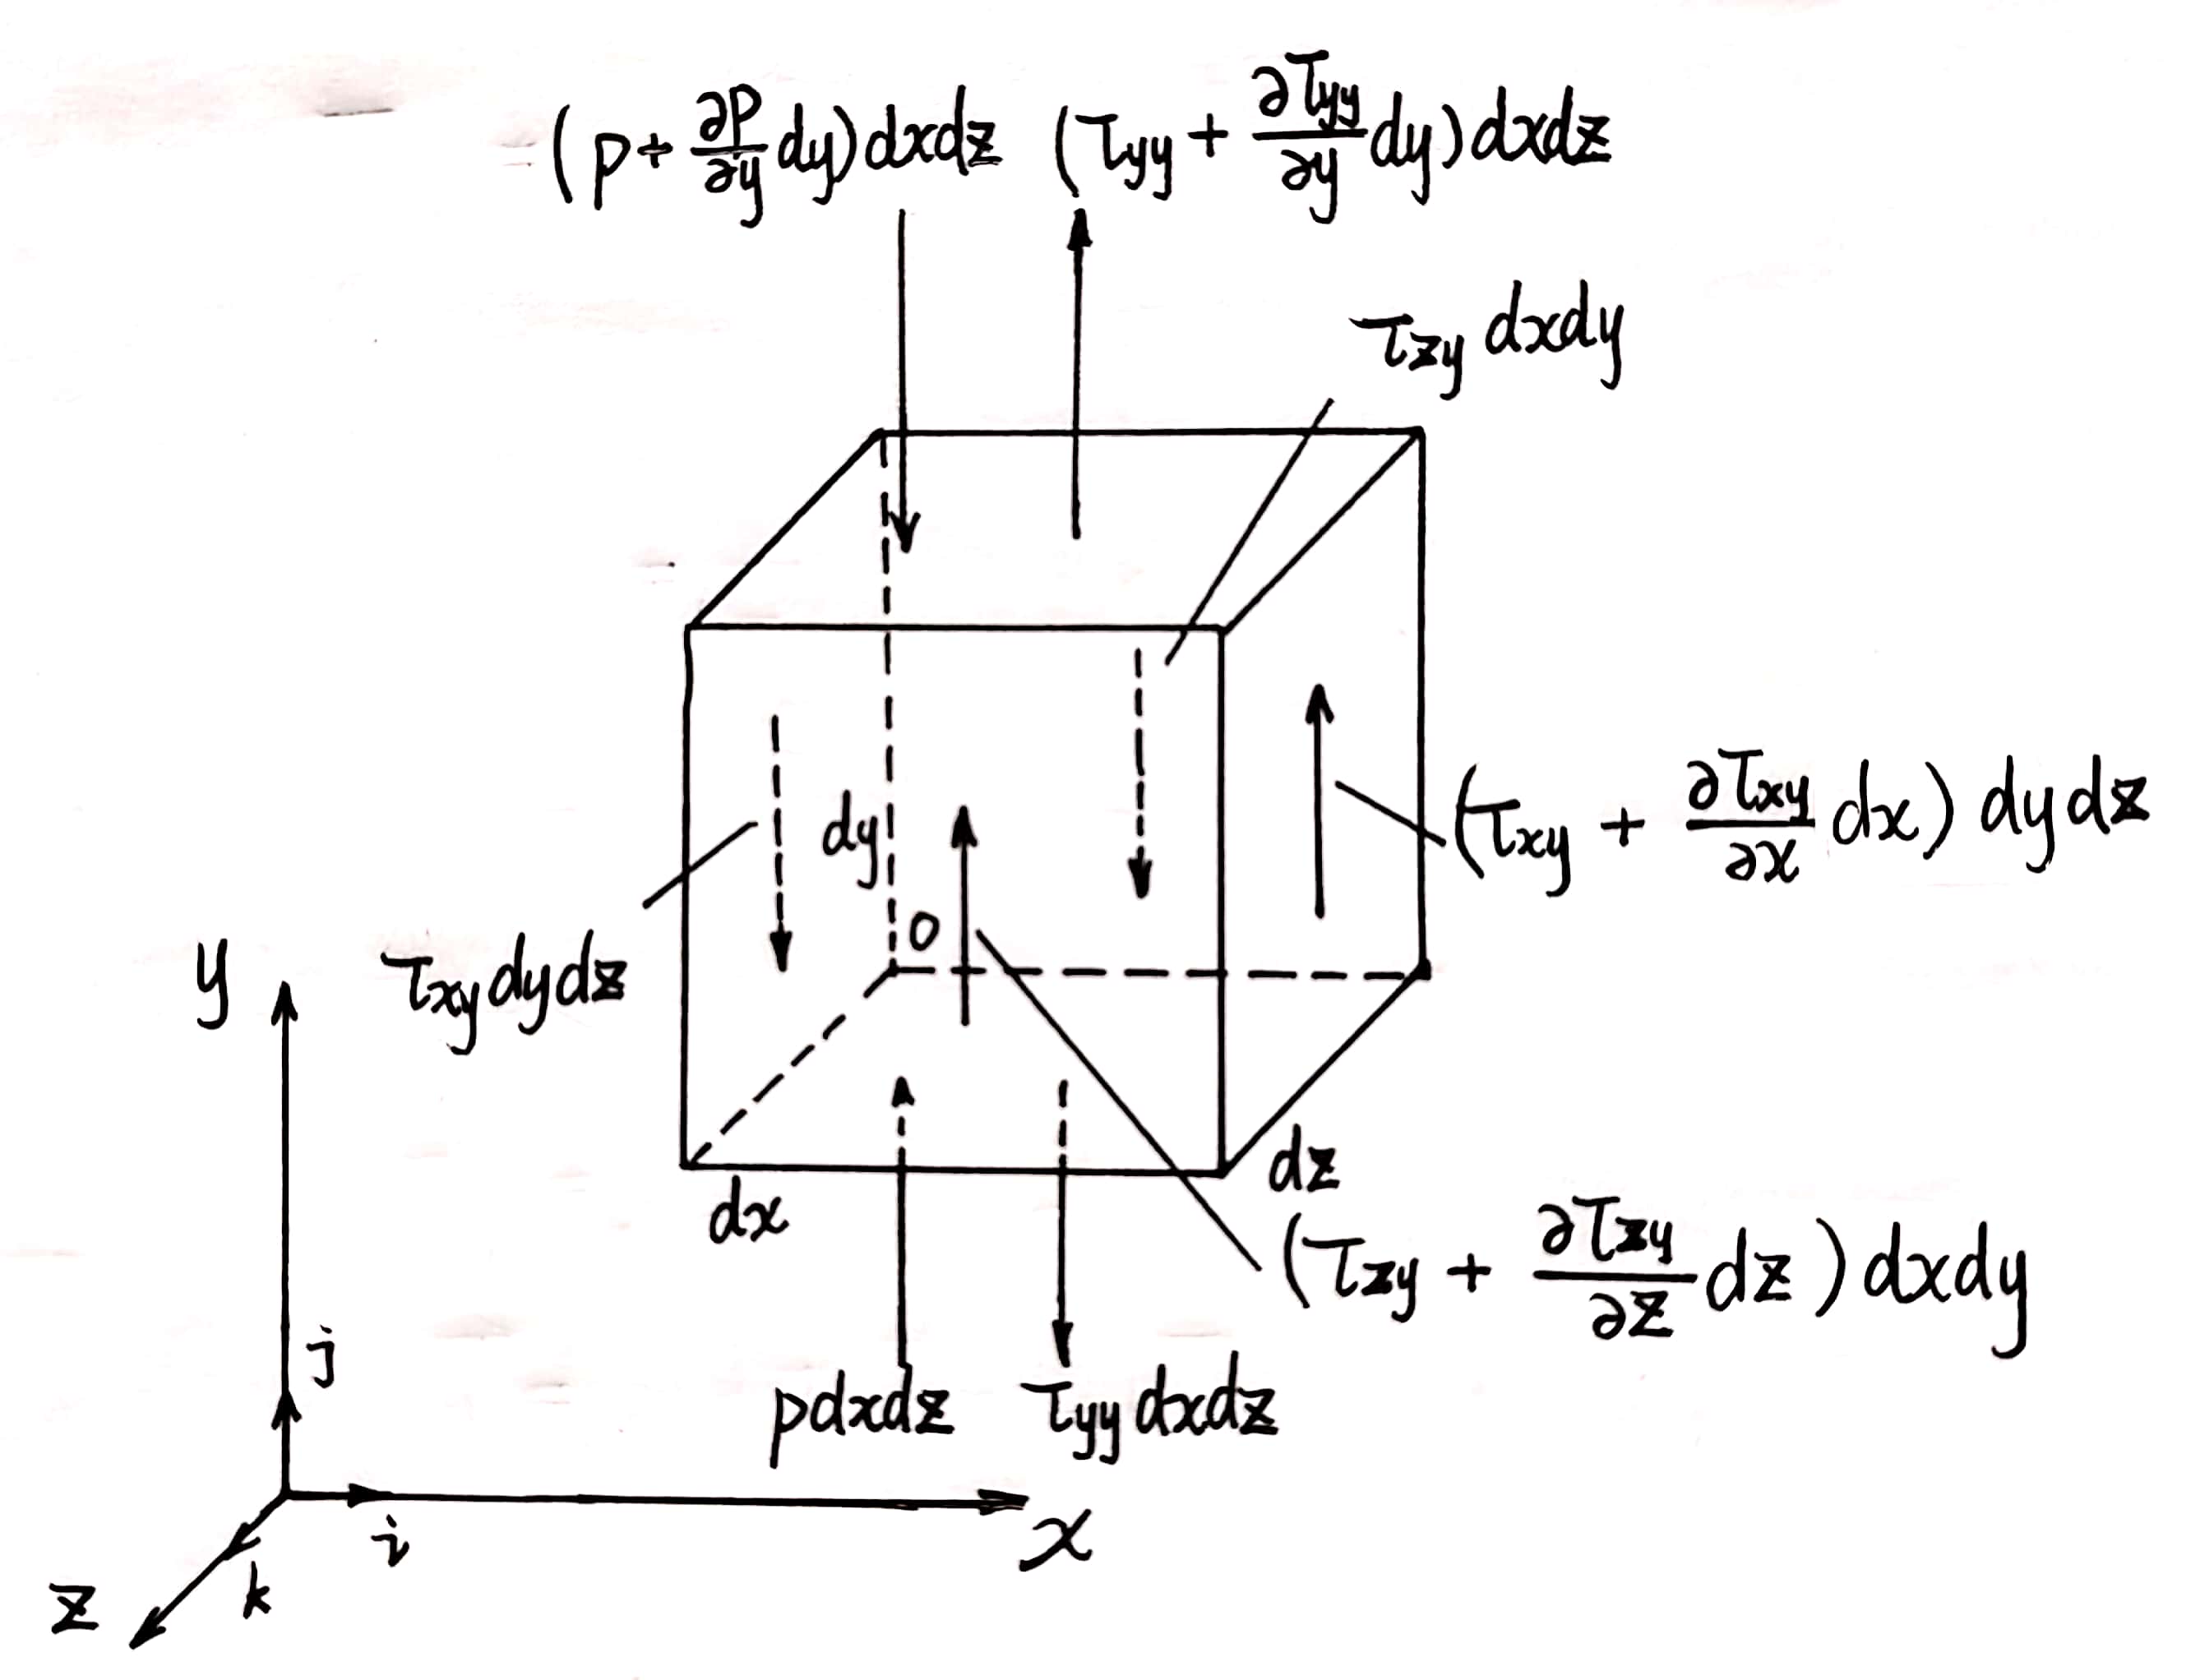 (p + ∂p/∂y dy) dxdz (τyy + ∂τyy/∂y dy) dxdz
τzy dxdy
(τxy + ∂τxy/∂x dx) dy dz
dy
O
τxy dydz
y
dz
dx
(τzy + ∂τzy/∂z dz) dxdy
j
pdxdz τyy dxdz
x
i
k
z